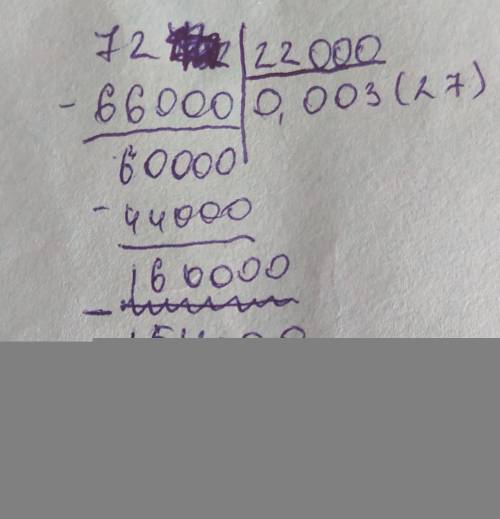 72 22000
- 66000 0,003(27)
60000
- 44000
160000
-